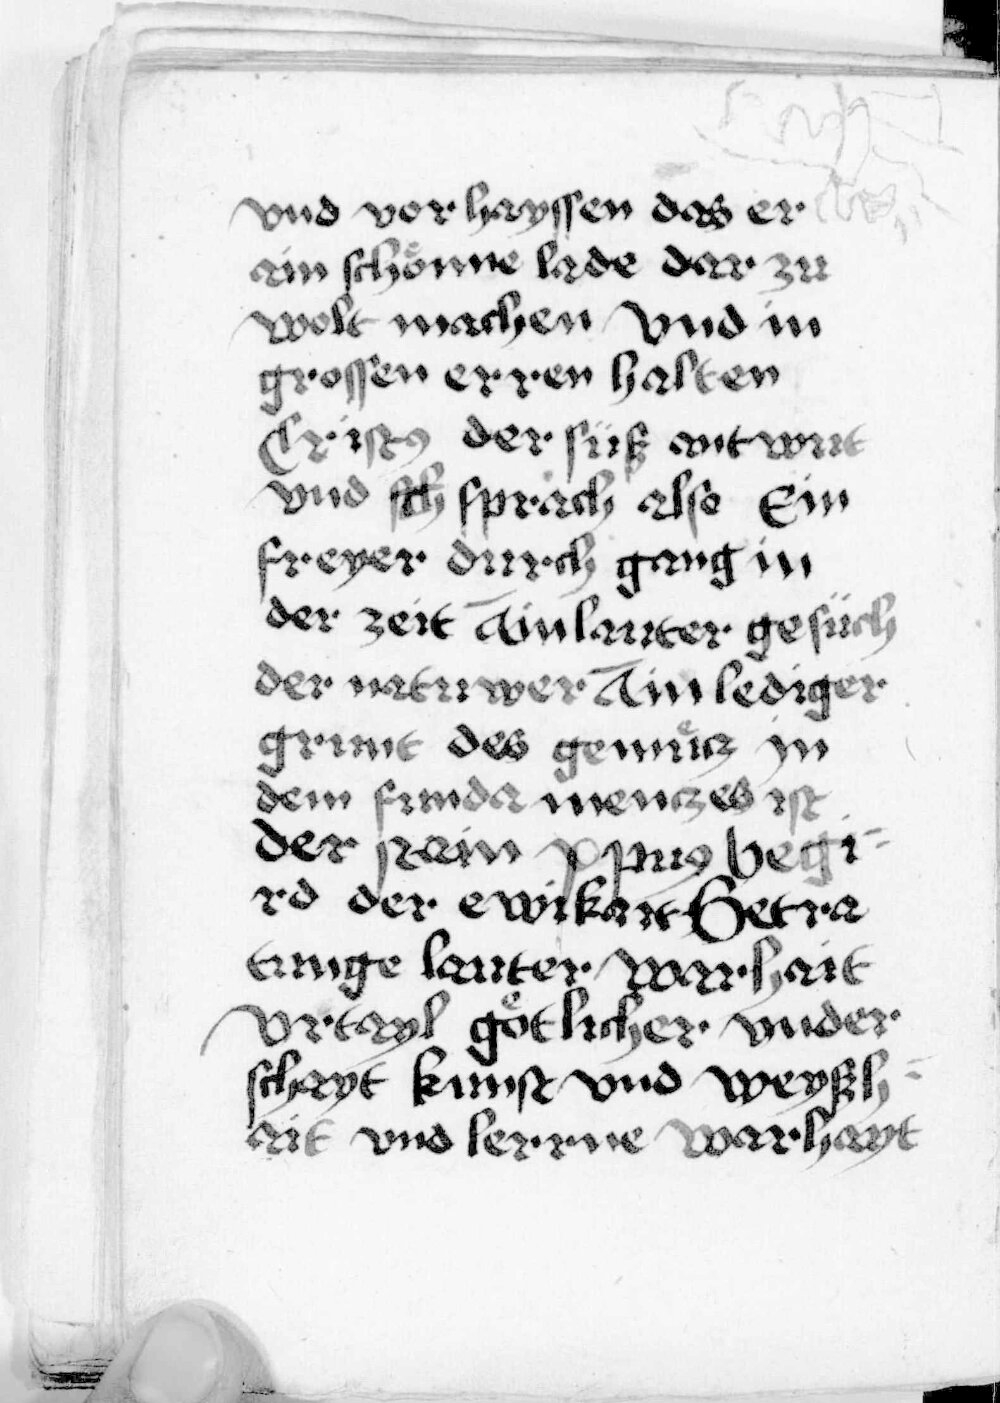 vnd vor hayssen das er
ain schoͤnne lade dar zu
wolt machen Vnd in
grossen erren halten
Cristꝰ der süß antwut
vnd sch sprach alse Ein
freyer durch gang in
der zeit Ain lauter gesüch
der natuwer Ain lediger
grunt des gemuͤcz in
dem funda menczes ist
der rain begi-
rd der ewikait Betra
tunge lauter warhait
Vrtayl goͤtlicher vnder
schayt kunst vnd weyßh-
ait vnd lerrne warhayt